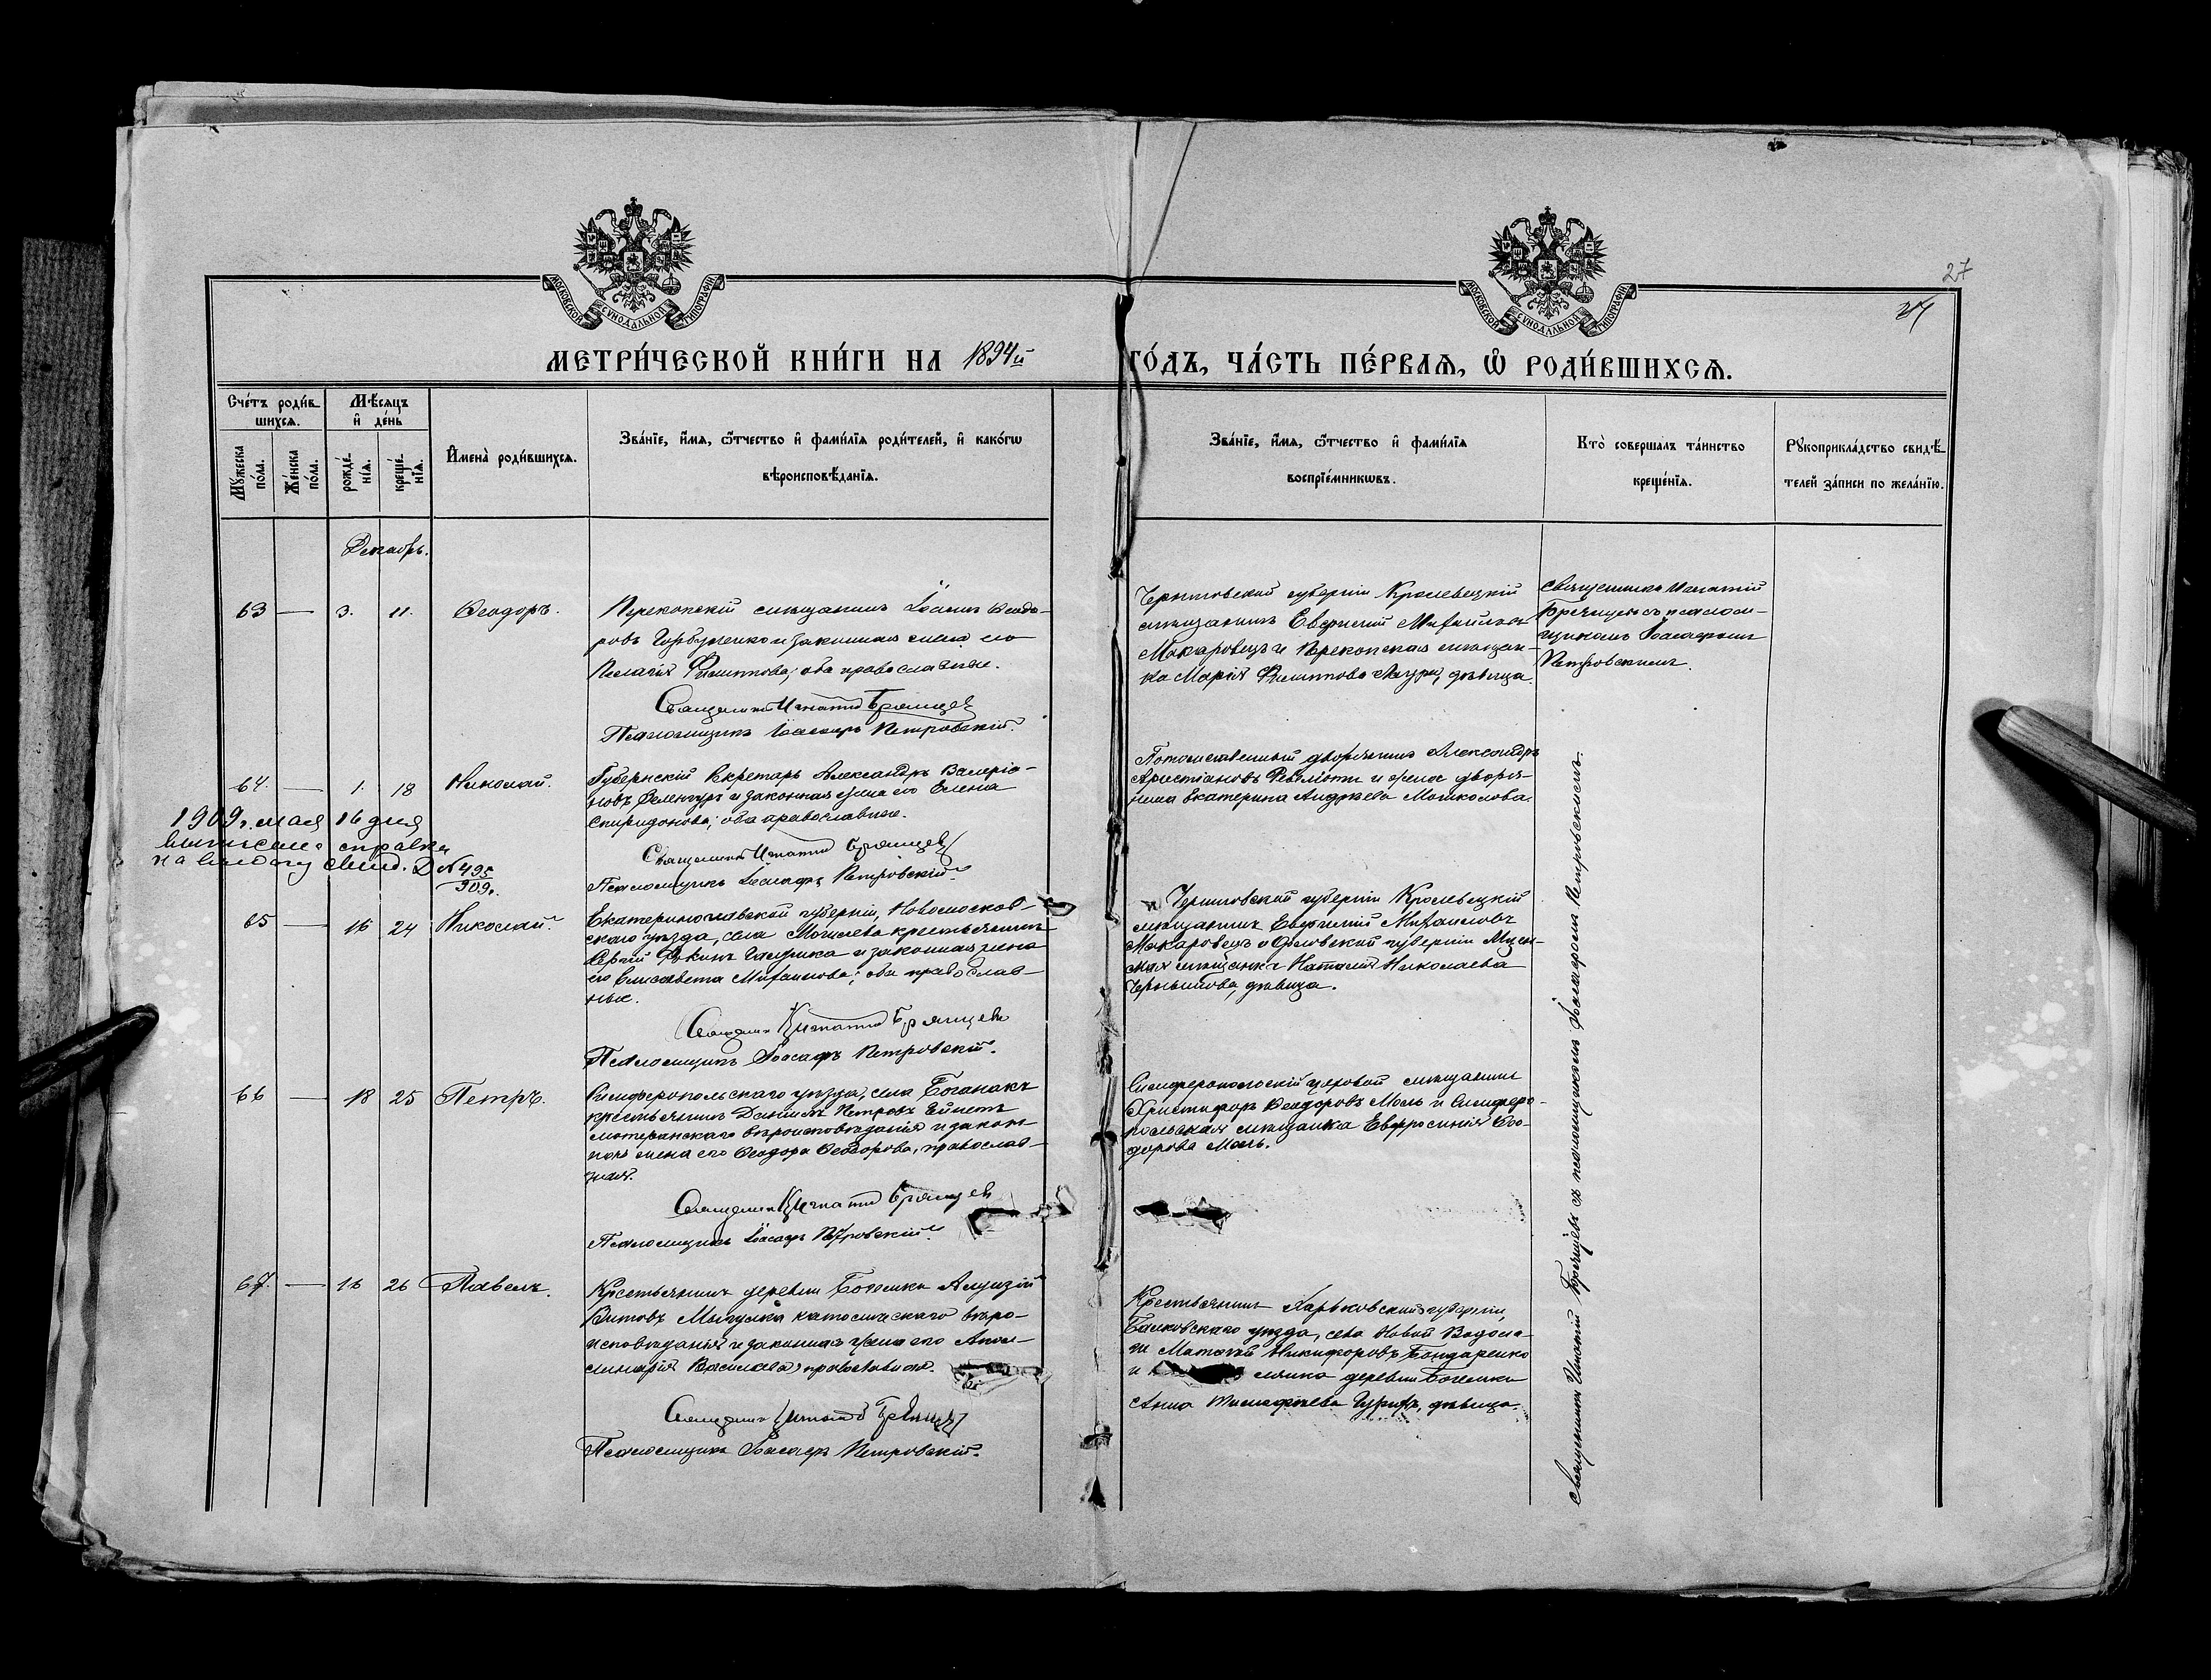 МОСКОВСКОЙ СУНОДАЛЬНОЙ ТИПОГРАФІИ
МОСКОВСКОЙ СУНОДАЛЬНОЙ ТИПОГРАФІИ
27
МЕТРИ́ЧЕСКОЙ КНИ́ГИ НА 1894й
ГО́ДЪ, ЧА́СТЬ ПЕ́РВАѦ, Ѡ҆ РОДИ́ВШИХСѦ.
Сче́тъ роди́в
шихсѧ.
Мѣ́сѧцъ
и҆ де́нь
Мꙋ́жеска
по́ла.
Же́нска
по́ла.
рожде́
нїѧ.
креще́
нїѧ.
И҆мена̀ роди́вшихсѧ.
Зва́нїе, и҆́мѧ, ѻ҆́тчество и҆ фами́лїѧ роди́телей, и҆ како́гѡ
вѣроисповѣ́данїѧ.
Зва́нїе, и҆́мѧ, ѻ҆́тчество и҆ фами́лїѧ
воспрїе́мникѡвъ.
Кто̀ соверша́лъ та́инство
креще́нїѧ.
Рꙋкоприкла́дство свидѣ́
телей за́писи по жела́нїю.
Декабрь.
63 — 3. 11. Ѳеодоръ.
Перекопскій мѣщанинъ Іоаннъ Ѳеодо-
ровъ Горбуненко и законная жена его
Пелагія Филиппова; оба православные.
Священникъ Игнатій Брянцевъ
Псаломщикъ Іоасафъ Петровскій.
Черниговской губерніи Кролевецкій
мѣщанинъ Евфимій Михайловъ
Макаровецъ и Перекопская мѣщан-
ка Марія Филиппова дѣвица.
Священникъ Игнатій
Брянцевъ съ псалом-
щикомъ Іоасафомъ
Петровскимъ.
64. — 1. 18 Николай.
Губернскій Секретарь Александръ Валеріа-
новъ и законная жена его Елена
Спиридонова; оба православные.
Священникъ Игнатій Брянцевъ
Псаломщикъ Іоасафъ Петровскій.
Потомственный дворянинъ Александръ
Аристіановъ Ревеліоти и жена дворя-
нина Екатерина Андреева Мошколова.
1909 г. мая 16 дня
выписана справка
на выдачу свид. № 495
909 г.
65 — 16 24 Николай.
Екатеринославской губерніи, Новомосков-
скаго уѣзда, села Могилева крестьянинъ
Сергій Фокинъ и законная жена
его Елисавета Михайлова; оба православ-
ные.
Священникъ Игнатій Брянцевъ
Псаломщикъ Іоасафъ Петровскій.
Черниговской губерніи Кролевецкій
мѣщанинъ Евфимій Михайловъ
Макаровецъ и Орловской губерніи Мцен-
ская мѣщанка Наталія Николаева
Чернышова, дѣвица.
66 — 18 25 Петръ.
Симферопольскаго уѣзда, села Боганакъ
крестьянинъ Даніилъ Петровъ
лютеранскаго вѣроисповѣданія и закон-
ная жена его Ѳеодора Ѳеодорова, православ-
ная.
Священникъ Игнатій Брянцевъ
Псаломщикъ Іоасафъ Петровскій.
Симферопольскій цеховой мѣщанинъ
Христофоръ Ѳеодоровъ Моль и Симферо-
польская мѣщанка Евфросинія Ѳео-
дорова Моль.
67. — 16 26 Павелъ.
Крестьянинъ деревни Богемка Алоизій
Витовъ католическаго вѣро-
исповѣданія и законная жена его Апол-
линарія Васильева, православная.
Священникъ Игнатій Брянцевъ
Псаломщикъ Іоасафъ Петровскій.
Крестьянинъ Харьковской губерніи,
уѣзда, села Новой Водола-
ги Матвій Никифоровъ Бондаренко
и деревни Богемки
Анна дѣвица.
Священникъ Игнатій Брянцевъ съ псаломщикомъ Іоасафомъ Петровскимъ.